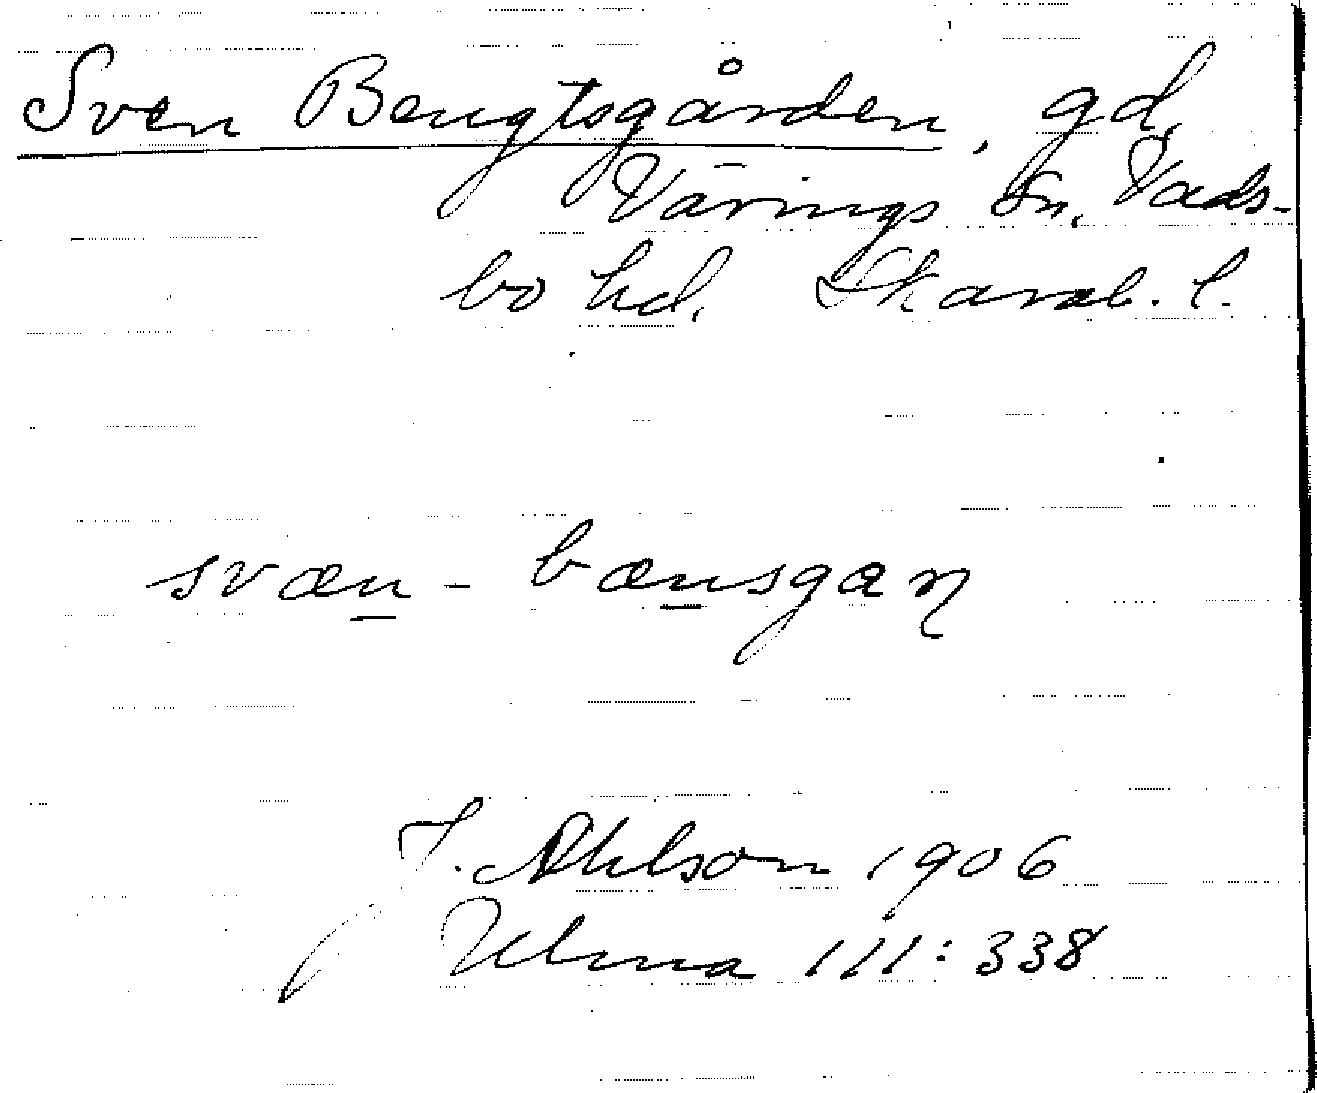 Sven Bengtsgården, gd,
Värings sn, Vads-
bo hd, Skarab. l.
svæn - bænsgaɳ
J. Ahlson 1906
Ulma 111:338